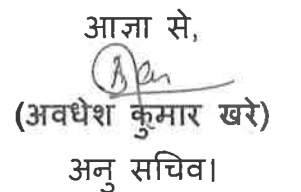 आज्ञा से,
(अवधेश कुमार खरे)
अनु सचिव।